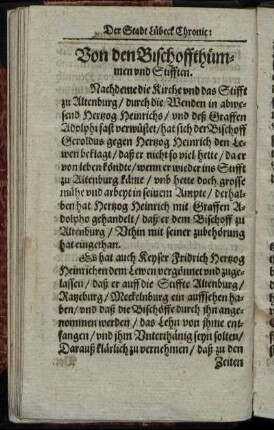 Der Stadt Lübeck Chronic:
Von den Bischoffthüm-
men vnd Stifften.
Nachdeme die Kirche vnd das Stifft
zu Altenburg / durch die Wenden in abwe-
send Hertzog Heinrichs / vnd deß Graffen
Adolphi fast verwüstet / hat sich der Bischoff
Geroldus gegen Hertzog Heinrich den Le-
wen beklagt / daß er nicht so viel hette / da er
von leben köndte / wenn er wieder ins Stifft
zu Altenburg käme / vnd hette doch grosse
mühe vnd arbeyt in seinem Ampte / derhal-
ben hat Hertzog Heinrich mit Graffen A-
dolpho gehandelt / daß er dem Bischoff zu
Altenburg / Vthin mit seiner zubehörung
hat eingethan.
Es hat auch Keyser Fridrich Hertzog
Heinrichen dem Lewen vergünnet vnd zuge-
lassen / daß er auff die Stiffte Altenburg /
Ratzeburg / Meckelnburg ein auffsehen ha-
ben / vnd daß die Bischöffe durch ihn ange-
nommen werden / das Lehn von ihme ent-
fangen / vnd ihm Vnterthänig seyn solten /
Darauß klärlich zu vernehmen / daß zu den
Zeiten